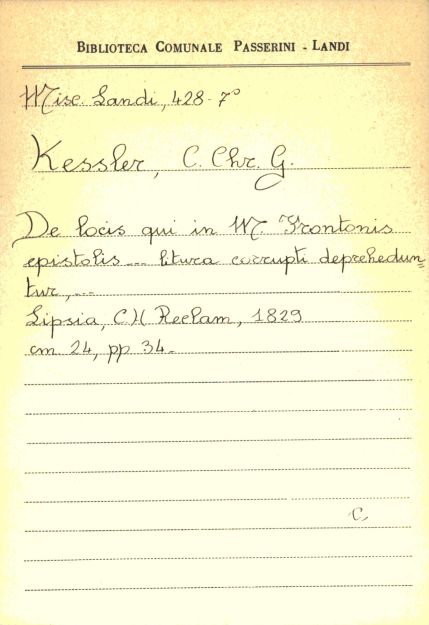 BIBLIOTECA COMUNALE PASSERINI - LANDI
Misc. Landi, 428-7°
Kessler, C. Chr. G.
De locis qui in M. Frontonis
epistolis ... litura corrupti deprehedun=
tur, ...
Lipsia, CH Reclam, 1829
cm 24, pp 34.
C